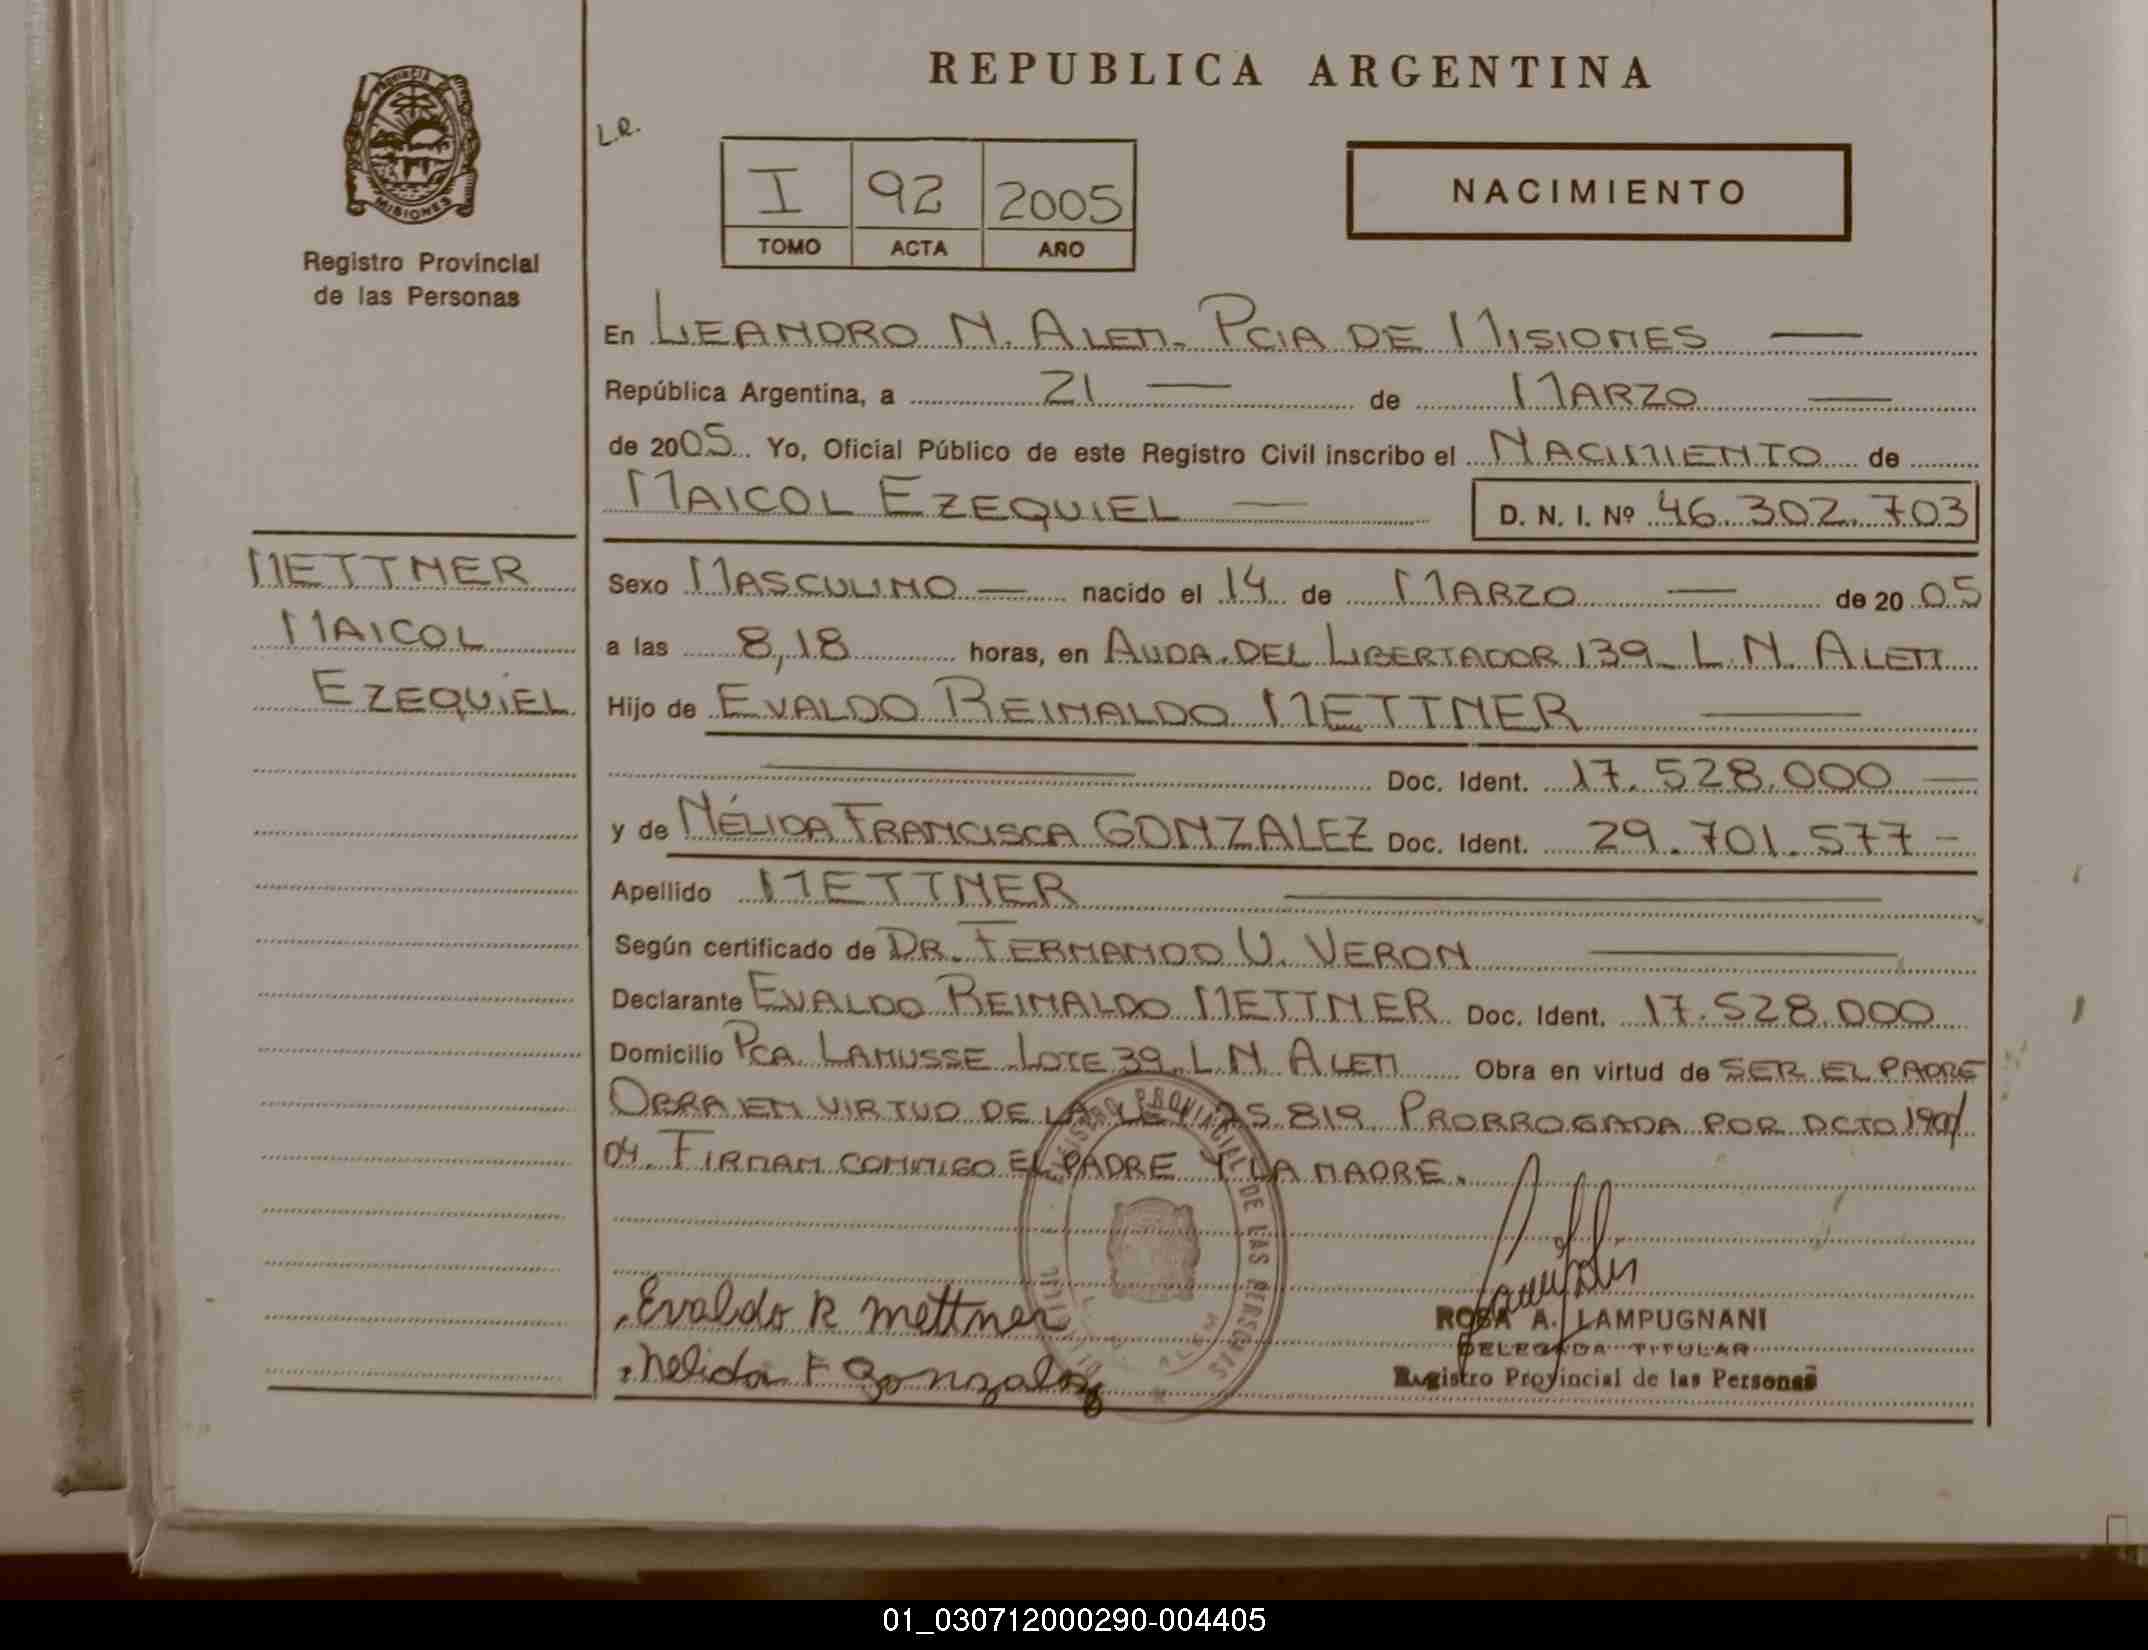 REPUBLICA ARGENTINA
PROVINCIA
MISIONES
Registro Provincial
de las Personas
L.R.
I 92 2005
TOMO ACTA AÑO
NACIMIENTO
En LEANDRO N. ALEM. PCIA DE MISIONES
República Argentina, a 21 de MARZO
de 2005 Yo, Oficial Público de este Registro Civil inscribo el NACIMIENTO de
MAICOL EZEQUIEL D. N. I. Nº 46.302.703
METTNER
MAICOL
EZEQUIEL
Sexo MASCULINO nacido el 14 de MARZO de 2005
a las 8,18 horas, en AVDA. DEL LIBERTADOR 139. L. N. ALEM
Hijo de EVALDO REINALDO METTNER
Doc. Ident. 17.528.000
y de NÉLIDA FRANCISCA GONZALEZ Doc. Ident. 29.701.577
Apellido METTNER
Según certificado de DR. FERNANDO V. VERON
Declarante EVALDO REINALDO METTNER Doc. Ident. 17.528.000
Domicilio PCA. LANUSSE LOTE 39. L N. ALEM Obra en virtud de SER EL PADRE
OBRA EN VIRTUD DE LA LEY 25.819 PRORROGADA POR DCTO
04. FIRMAN CONMIGO EL PADRE Y LA MADRE.
REGISTRO PROVINCIAL DE LAS PERSONAS
ALEM
Evaldo R mettner
nelida F Gonzalez
ROSA A. LAMPUGNANI
DELEGADA TITULAR
Registro Provincial de las Personas
01_030712000290-004405